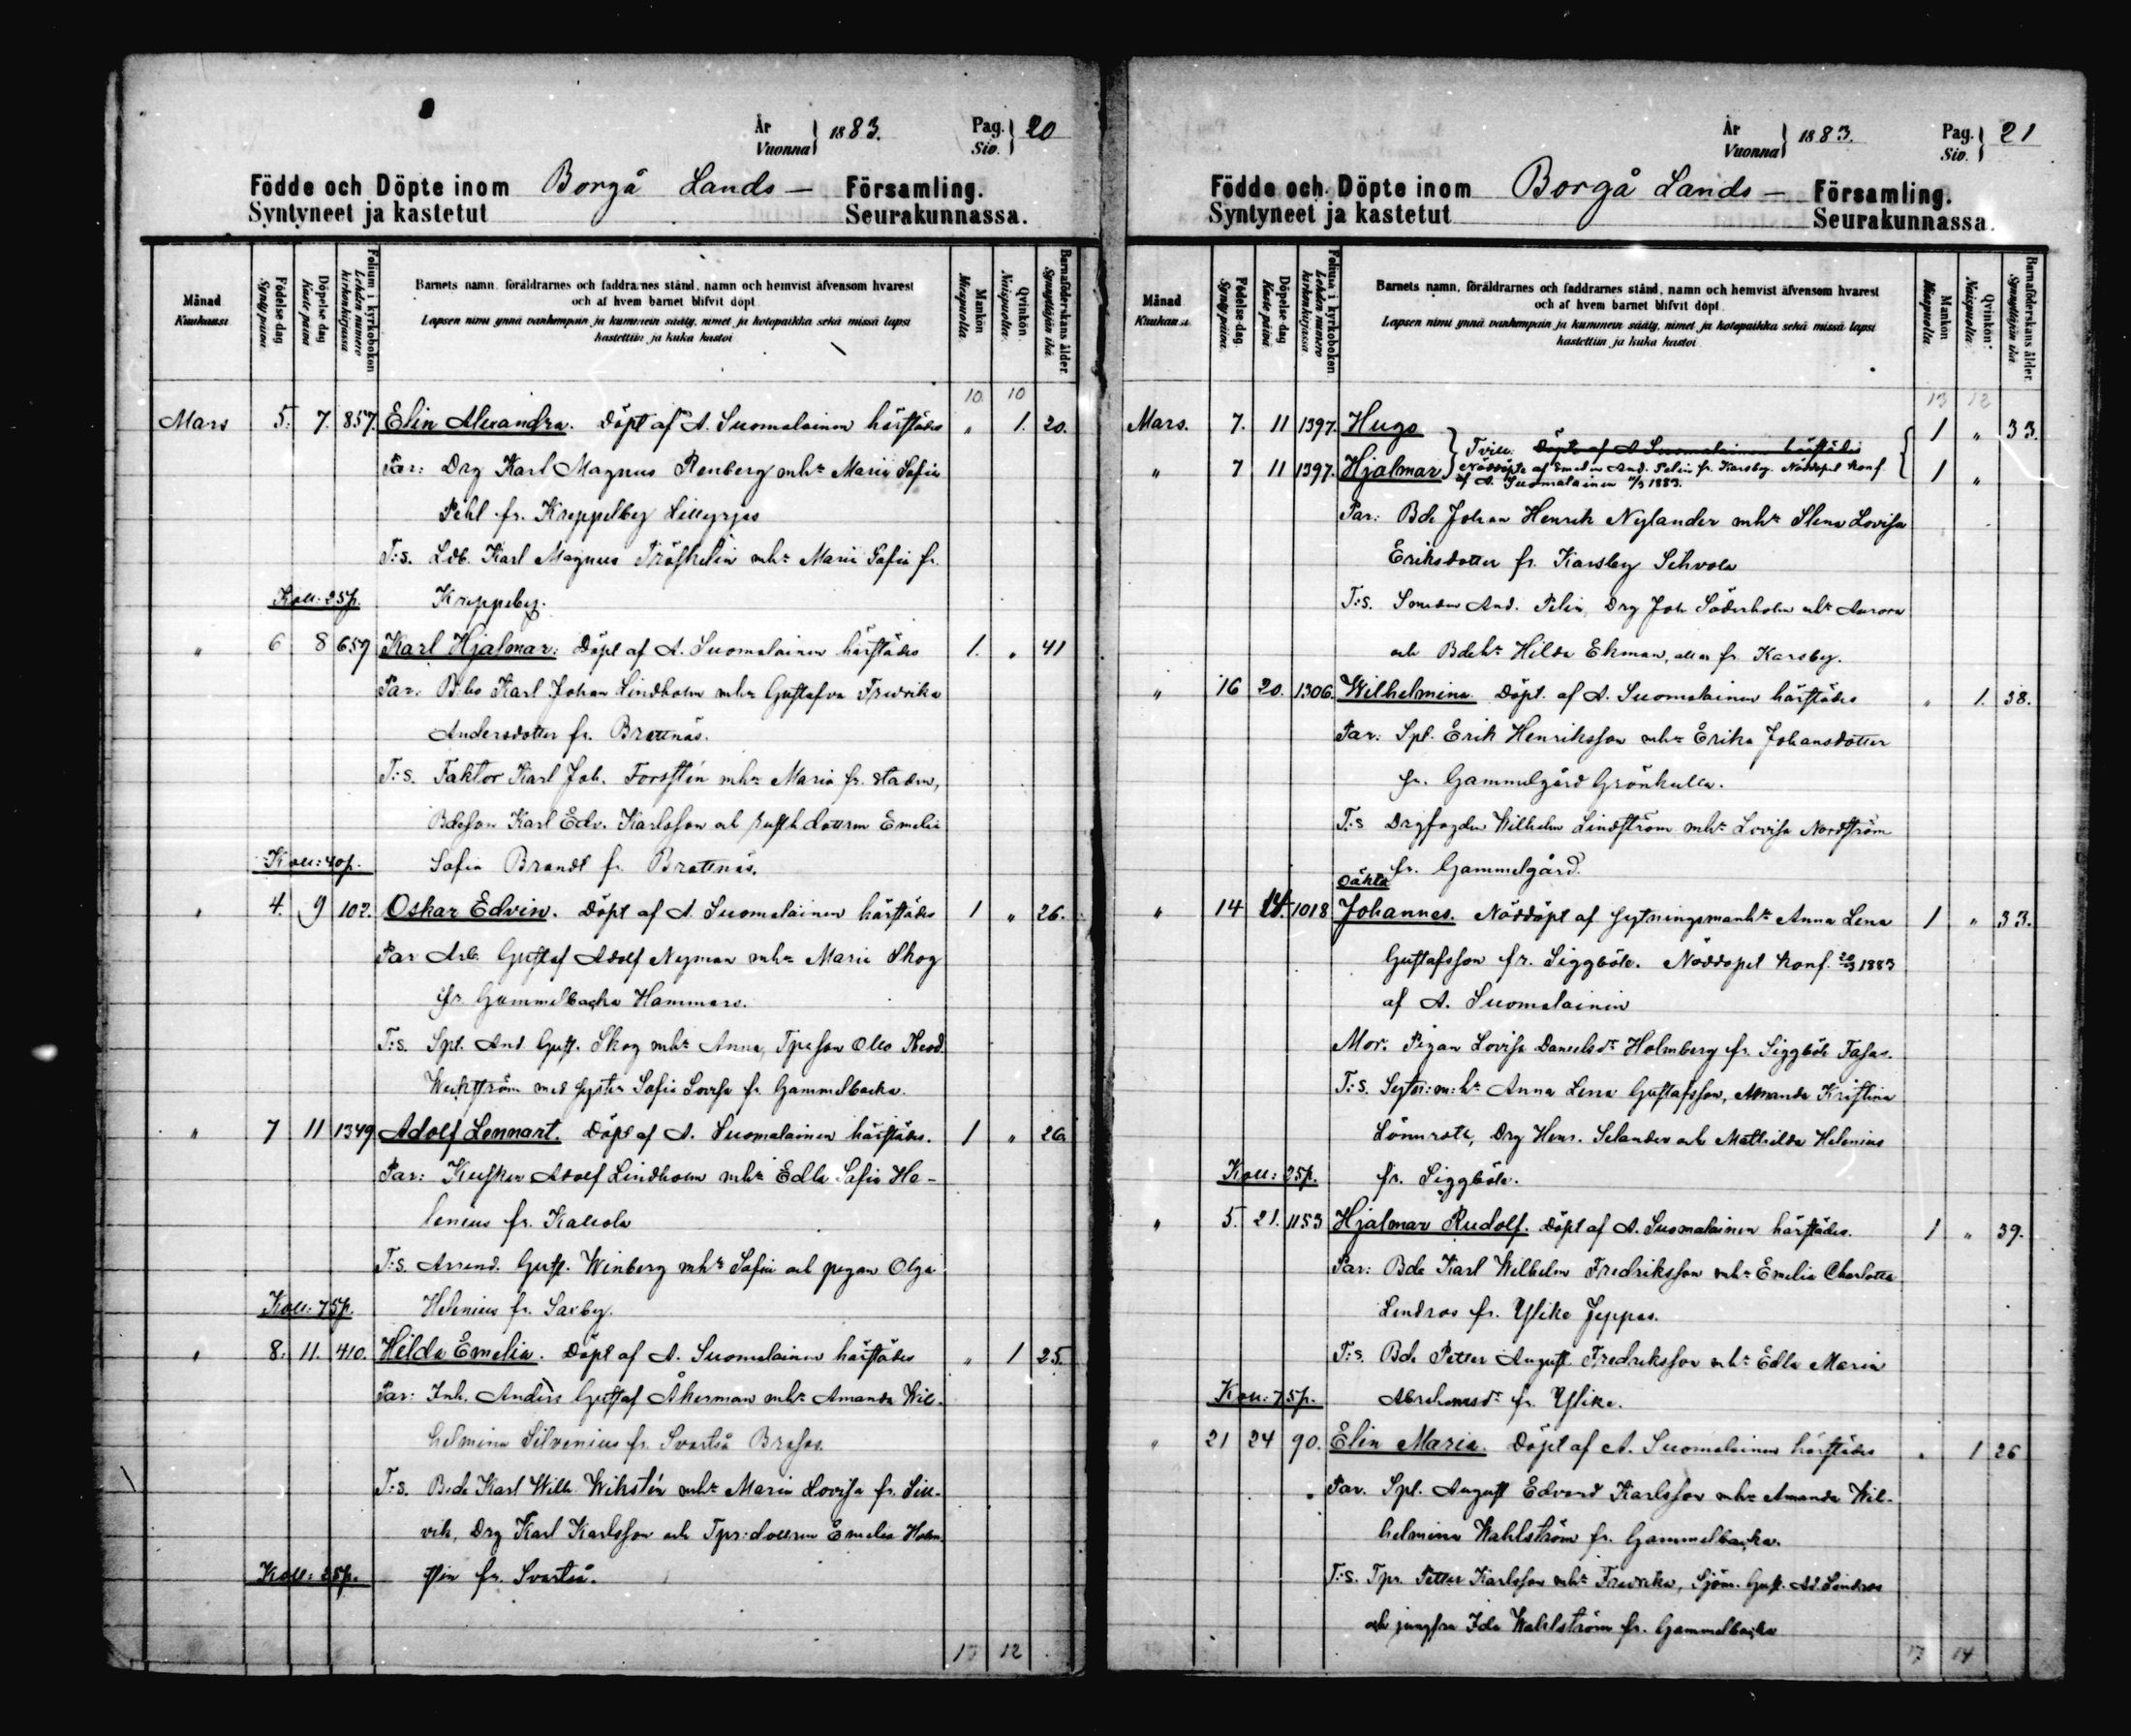 År
Vuonna } 1883.
Pag.
Siv. } 20
Födde och Döpte inom Borgå Lands — Församling.
Syntyneet ja kastetut Seurakunnassa.
Månad
Kuukausi
Födelse dag
Synty päivä.
Döpelse dag
Kaste päivä
Folium i kyrkoboken
Lehden numero
kirkonkirjassa
Barnets namn, föräldrarnes och faddrarnes stånd, namn och hemvist äfvensom hvarest
och af hvem barnet blifvit döpt.
Lapsen nimi ynnä vanhempain ja kummein sääty, nimet ja kotopaikka sekä missä lapsi
kastettiin ja kuka kastoi
Mankön
Miespuolia.
Qvinkön.
Naispuolia.
Barnaföderskans ålder.
Synnyttäjän ikä.
10 10
Mars 5. 7. 857. Elin Alexandra. Döpt af A. Suomalainen härstädes " 1. 20.
Par: Drg Karl Magnus Renberg mhr Maria Sofia
Pihl fr. Kreppelby Lillgrjas
T:s. Ldb. Karl Magnus Träskelin mhr Maria Sofia fr.
Koll: 25p. Kreppelby.
" 6 8 657 Karl Hjalmar: Döpt af A. Suomalainen härstädes 1. " 41
Par: Karl Johan Lindholm mhr Gustafva Fredrika
Andersdotter fr. Brattnäs.
T:s. Faktor Karl Joh. Forstén mhr Maria fr. staden,
Bdeson Karl Edv. Karlsson och dottren Emelia
Koll: 40p. Sofia Brandt fr. Brattnäs.
" 4. 9 102. Oskar Edvin. Döpt af A. Suomalainen härstädes 1 " 26.
Par Arb. Gustaf Adolf Nyman mhr Maria Skog
fr. Gammelbacka Hammars.
T:s. Spl. And Gust. Skog mhr Anna, Tpreson Otto Theod.
Weckström med syster Sofia Lovisa fr. Gammelbacka.
" 7 11 1349 Adolf Lennart. Döpt af A. Suomalainen härstädes. 1 " 26
Par: Kusken Adolf Lindholm mhr Edla Sofia He-
lenius fr. Kallola
T:s. Arrend. Gust. Winberg mhr Sofia och pigan Olga
Koll: 75p. Helenius fr. Saxby.
" 8. 11. 410. Hilda Emelia. Döpt af A. Suomalainen härstädes " 1 25.
Par: Inh. Anders Gustaf Åkerman mhr Amanda Wil-
helmina Silvenius fr. Svartså Brasas.
T:s. Bde Karl Wilh. Wikstén mhr Maria Lovisa fr. Sill-
vik, Drg Karl Karlsson och Tpr:dottren Emelia Holm-
Koll: 25p. sten fr. Svartså.
12
År
Vuonna } 1883.
Pag.
Siv. } 21
Födde och Döpte inom Borgå Lands — Församling.
Syntyneet ja kastetut Seurakunnassa.
Månad
Kuukausi
Födelse dag.
Synty päivä.
Döpelse dag
Kaste päivä
Folium i kyrkoboken.
Lehden numero
kirkonkirjassa
Barnets namn, föräldrarnes och faddrarnes stånd, namn och hemvist äfvensom hvarest
och af hvem barnet blifvit döpt.
Lapsen nimi ynnä vanhempain ja kummein sääty, nimet ja kotopaikka sekä missä lapsi
kastettiin ja kuka kastoi
Mankön
Miespuolia.
Qvinkön.
Naispuolia.
Barnaföderskans ålder.
Synnyttäjän ikä
13 12
Mars. 7. 11 1397. Hugo 1 " 33.
Tvill. Döpt af A Suomalainen härstädes
" 7 11 1397. Hjalmar Nöddöpte af Smeden And. Pelin fr. Karsby. Nöddopet konf. 1 "
af A. Suomalainen 11/3 1883.
Par: Bde Johan Henrik Nylander mhr Stina Lovisa
Eriksdotter fr. Karsby Sehvola
T:s. Smeden And. Pelin, Drg Joh Söderholm mhr Aurora
och Bdehr Hilda Ekman, alla fr. Karsby.
" 16 20. 1306. Wilhelmina. Döpt. af A. Suomalainen härstädes " 1. 38.
Par: Spl. Erik Henriksson mhr Erika Johansdotter
fr. Gammelgård Grönkulla.
T:s Drgfogden Wilhelm Lindström mhr Lovisa Nordström
fr. Gammelgård.
Oäkta
" 14 14. 1018 Johannes. Nöddöpt af sytningsmanhr Anna Lena 1 " 33.
Gustafsson fr. Siggböle. Nöddopet konf. 20/3 1883
af A. Suomalainen
Mor. Pigan Lovisa Danielsdr Holmberg fr. Siggböle Fasas.
T:s. Sytn:m:hr Anna Lena Gustafsson, Amanda Kristina
Lönnrote, Drg Henr. Selander och Mathilda Helenius
Koll: 25p. fr. Siggböle.
" 5. 21. 1153 Hjalmar Rudolf. Döpt af A. Suomalainen härstädes. 1 " 39.
Par: Bde Karl Wilhelm Fredriksson mhr Emelia Charlotta
Lindros fr. Ylike Jeppas.
T:s. Bde Petter August Fredriksson mhr Edla Maria
Koll: 75p. Abrahamsdr fr. Ylike.
" 21 24 90. Elin Maria. Döpt af A. Suomalainen härstädes " 1 26
Par. Spl. August Edvard Karlsson mhr Amanda Wil-
helmina Wahlström fr. Gammelbacka.
T:s. Tpr. Petter Karlsson mhr Fredrika, Sjöm. Gust. Ad. Lindros
och jungfru Ida Wahlström fr. Gammelbacka
17 14